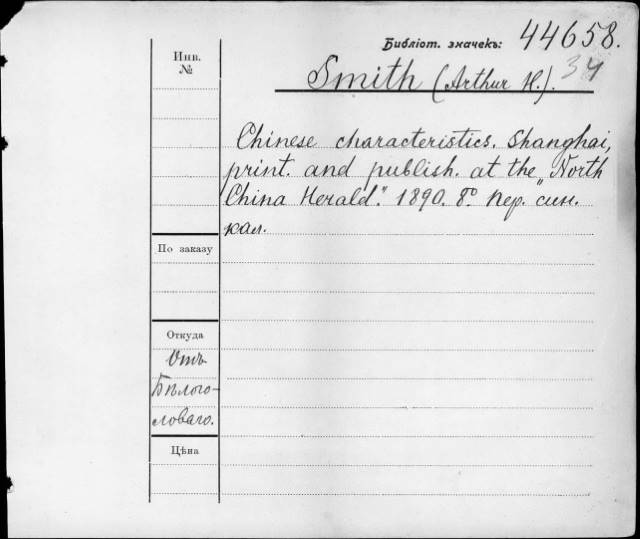 Библіот. значекъ: 44658.
34
Инв.
№
Smith (Arthur H.).
Chinese characteristics. Shanghai,
print. and publish. at the „North
China Herald". 1890. 8° пер. син.
кал.
По заказу
Откуда
Отъ
Бѣлого-
ловаго.
Цѣна